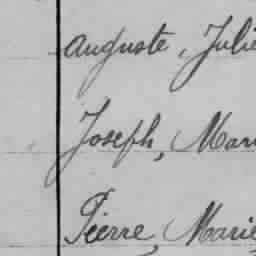 Auguste, Julie
Joseph, Mari
Pierre, Marie